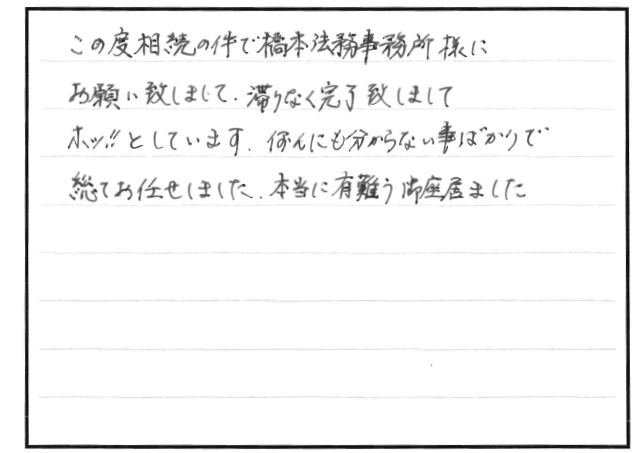 この度相続の件で橋本法務事務所様に
お願い致しまして、滞りなく完了致しまして
ホッ!!としています。何んにも分からない事ばかりで
総てお任せしました。本当に有難う御座居ました